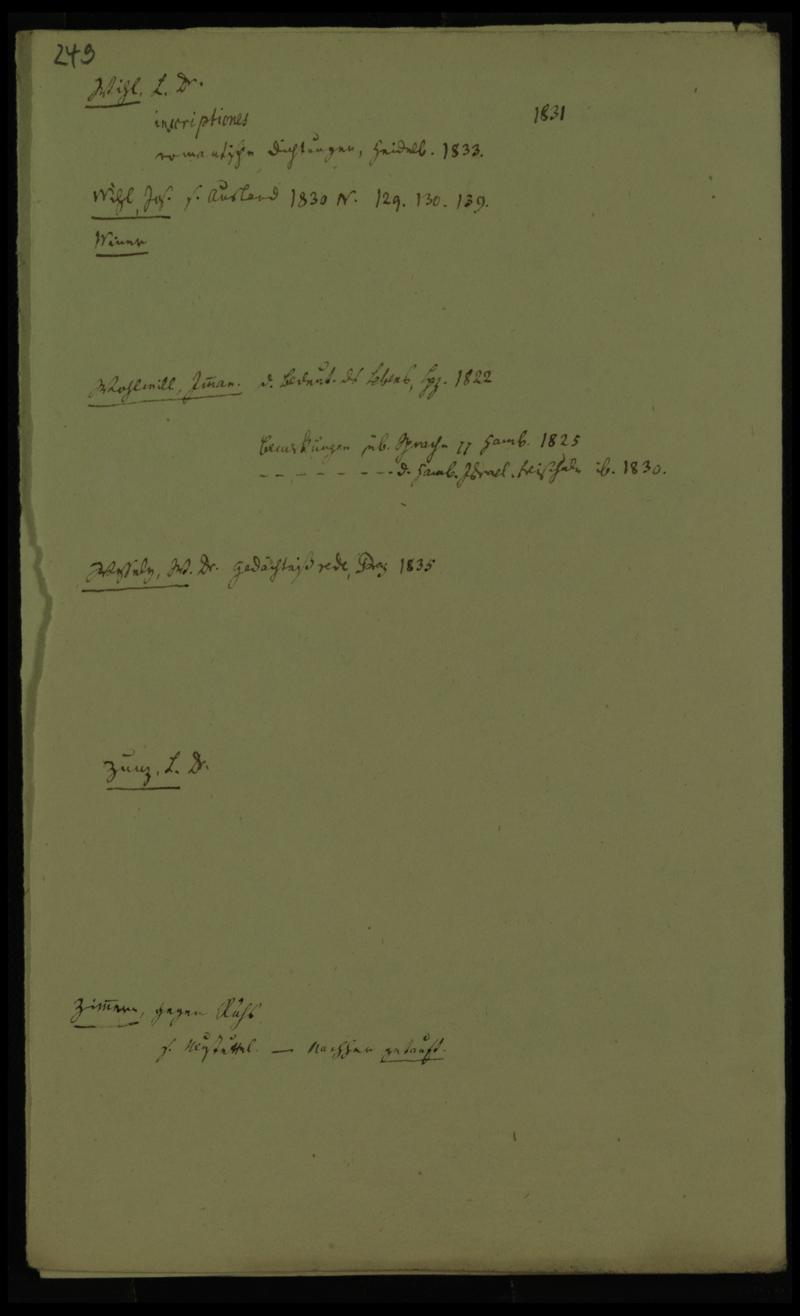 249
Wihl, L. Dr.
inscriptiones 1831
romantische Dichtungen, Heidelb. 1833.
Wihl, Jos. s. Ausland 1830 N. 129. 130. 139.
Wiener
Wohlwill, Im̄an. d. Bedeut. des Lebens, Lpz. 1822
Bemerkungen üb. Sprache Hamb. 1825
- - - - - - - d. Hamb. Israel. Freischule ib. 1830.
Wessely, W. Dr. Gedächtnißrede, Prag 1835
Zunz, L. Dr.
Zim̄ern, gegen Rühs
s. Neustettel. — Nachher getauft.